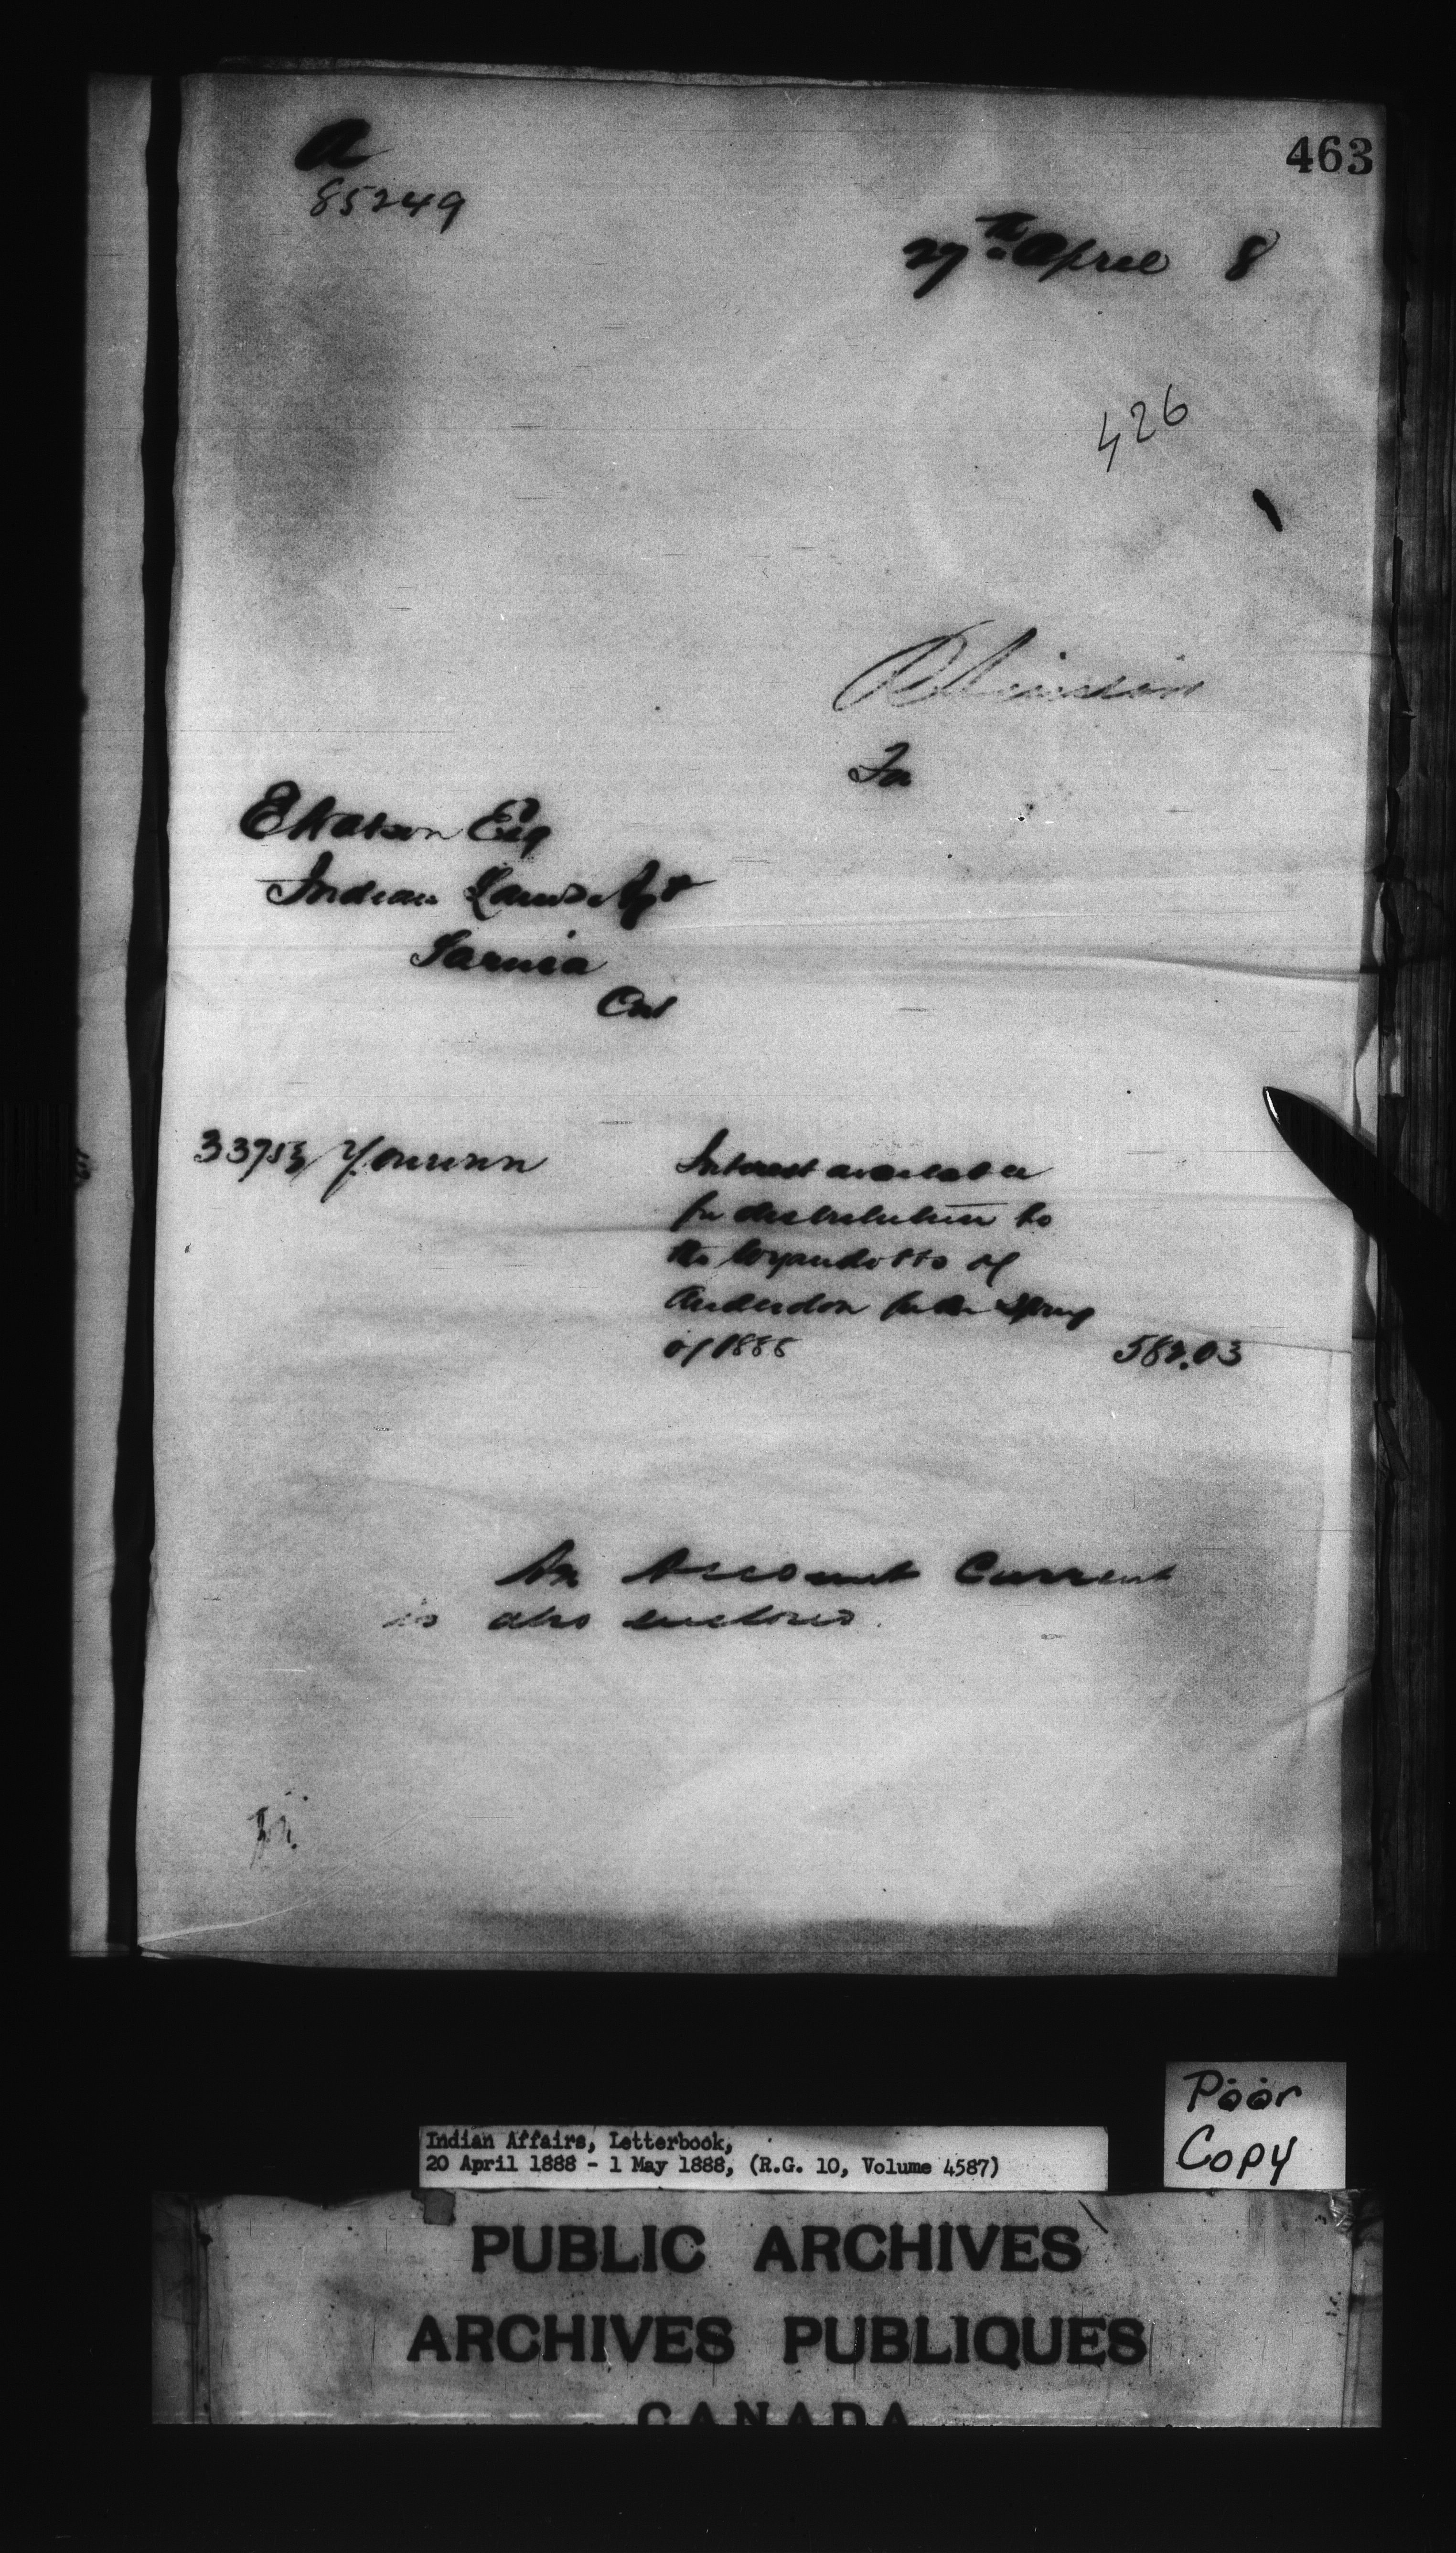 463
A
85249
27th April 8
426
E Watson Esq
Indian Lands Agt
Sarnia
Ont
Yourson
Interest available
for distribution to
the Wyandotts of
Anderdon for the Spring
of 1888 582.03
An Account Current
is also enclosed.
Poor
Copy
Indian Affairs, Letterbook,
20 April 1888 - 1 May 1888, (R.G. 10, Volume 4587)
PUBLIC ARCHIVES
ARCHIVES PUBLIQUES
CANADA